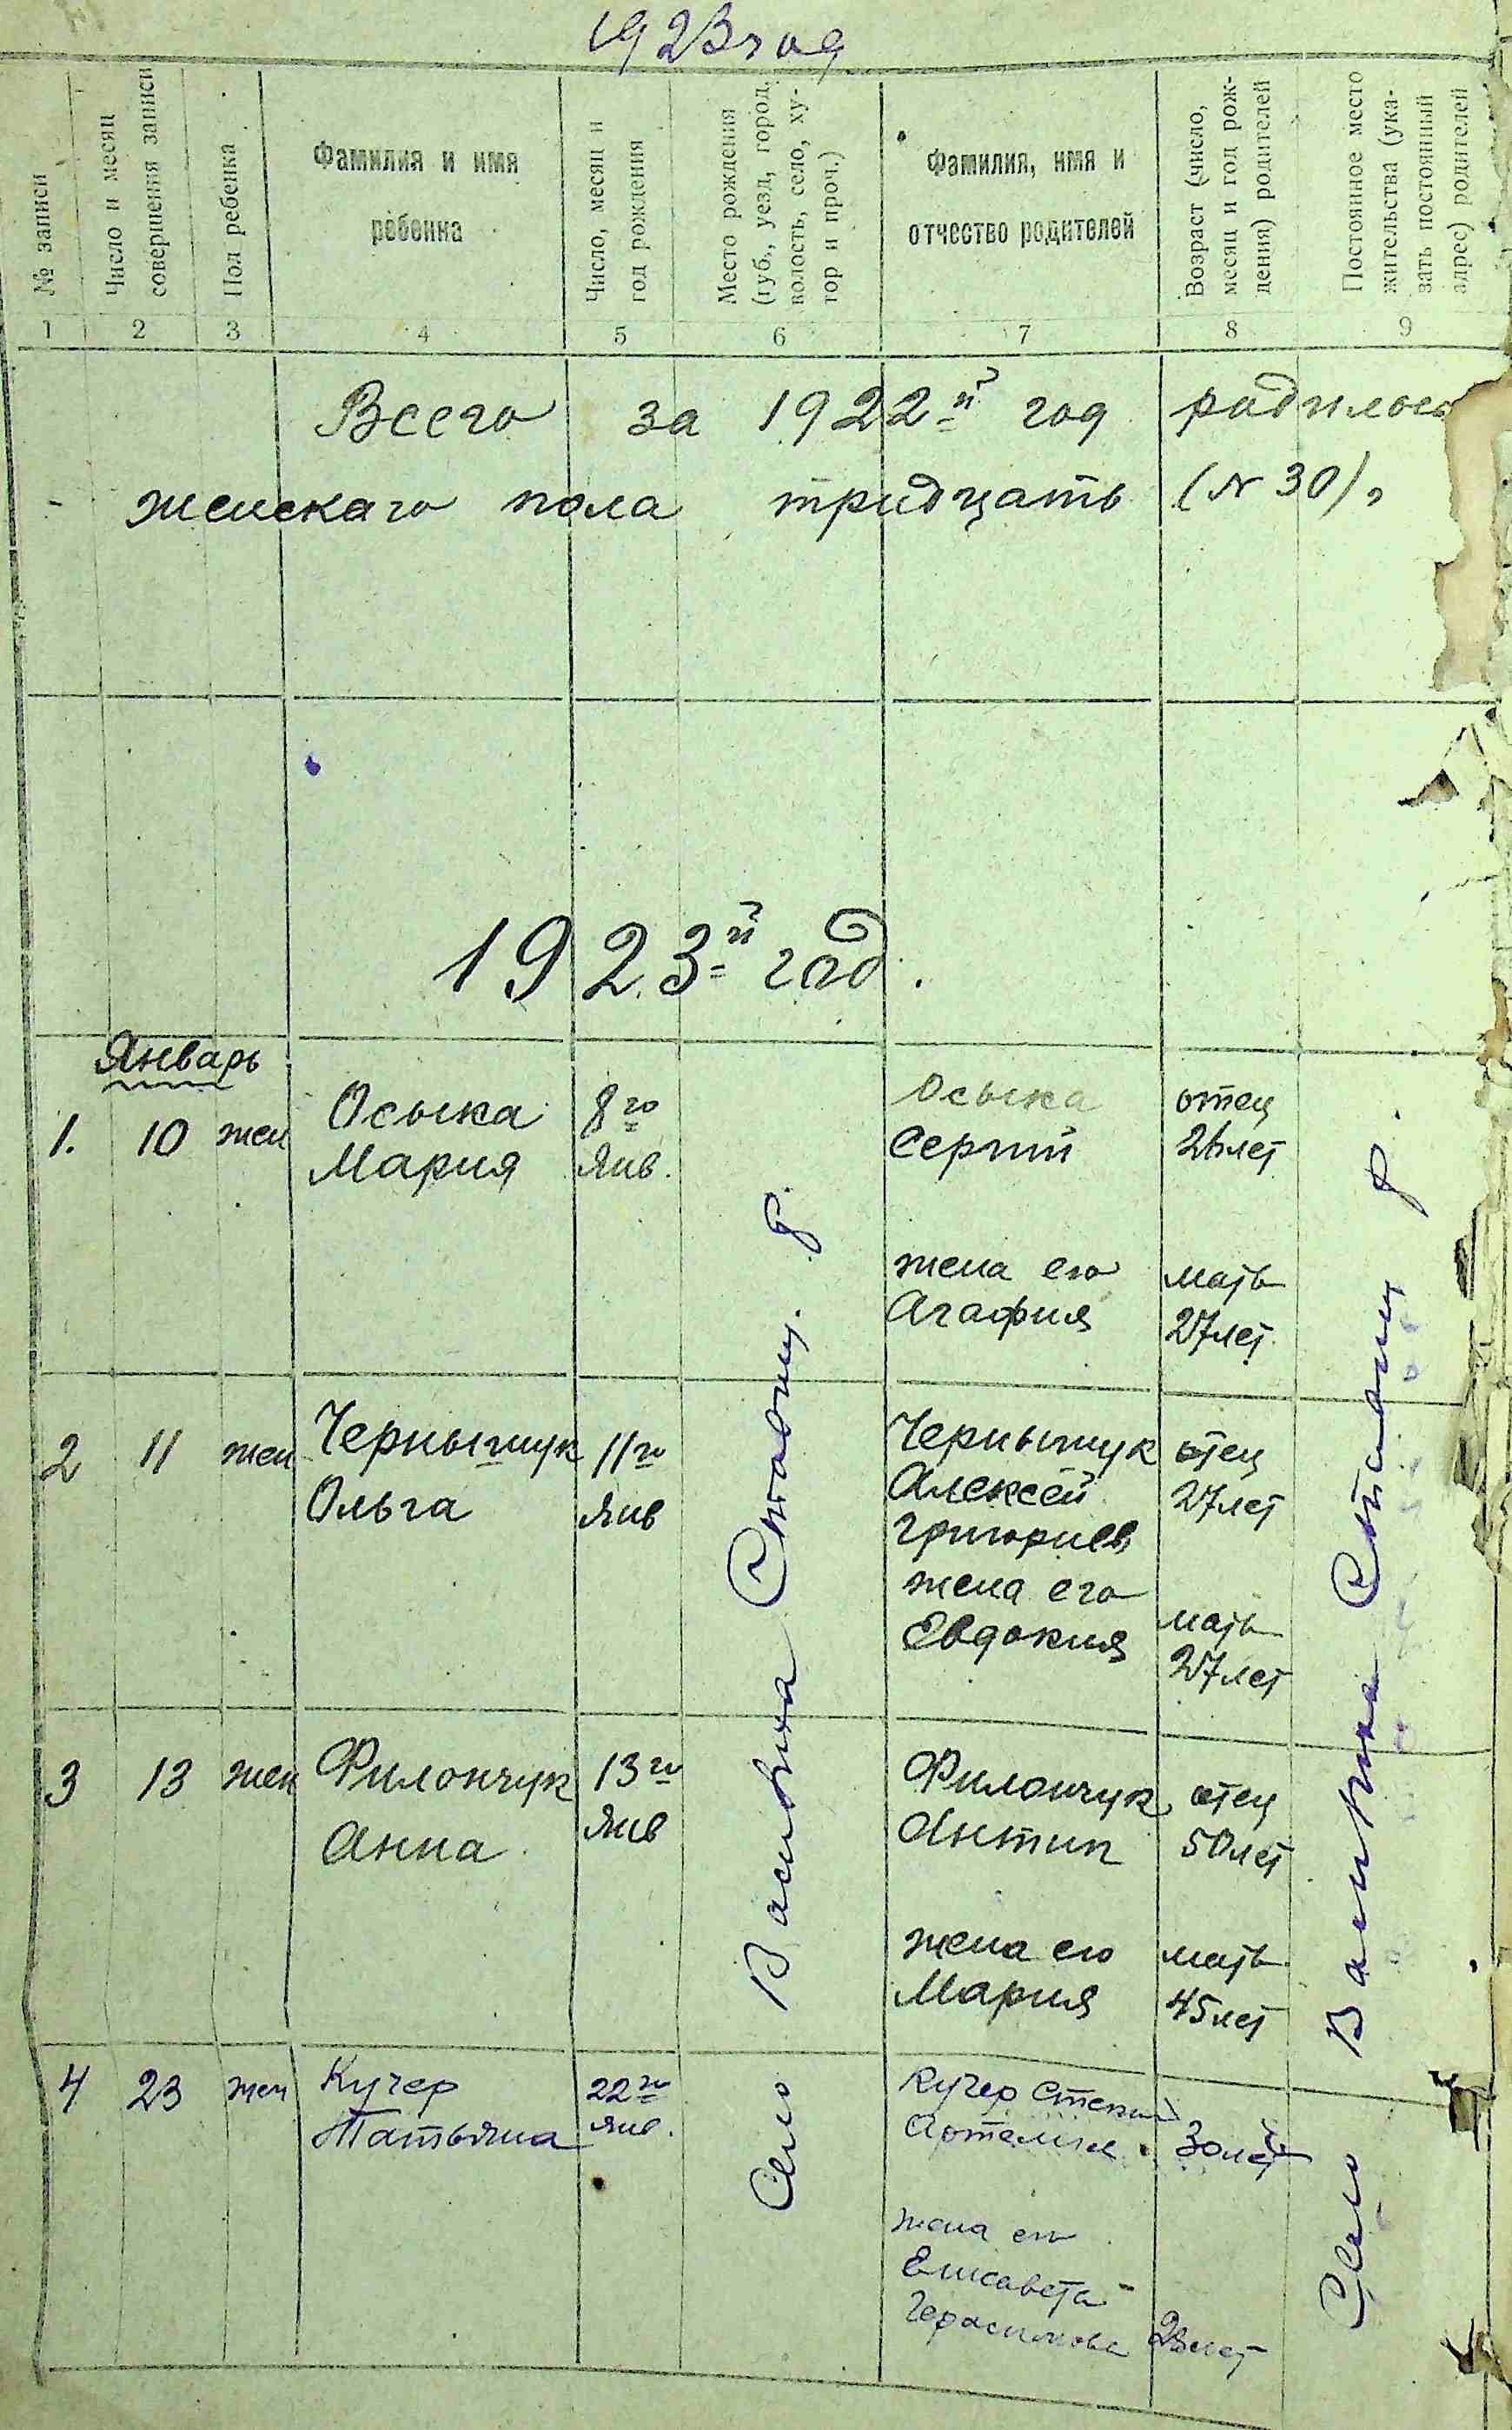 1923 год
№ записи
Число и месяц
совершения записи
Пол ребенка
Фамилия и имя
ребенка
Число, месяц и
год рождения
Место рождения
(губ., уезд, город,
волость, село, ху-
тор и проч.)
Фамилия, имя и
отчество родителей
Возраст (число,
месяц и год рож-
дения) родителей
Постоянное место
жительства (ука-
зать постоянный
адрес) родителей
1 2 3 4 5 6 7 8 9
Всего за 1922й год родилось
женскаго пола тридцать (№ 30),
1923й год.
Январь
1. 10 жен
Осыка
Мария
8го
Янв.
Осыка
Сергий
жена его
Агафия
отец
26лет
мать
27лет
2 11 жен
Чернышук
Ольга
11го
Янв
Чернышук
Алексей
Григориев
жена его
Евдокия
отец
27лет
мать
27лет
3 13 жен
Филончук
Анна
13го
Янв
Филончук
Антип
жена его
Мария
отец
50лет
мать
45лет
4 23 жен
Кучер
Татьяна
22го
янв.
Кучер
жена его
Елисавета
Герасимова
30лет
Село
Село